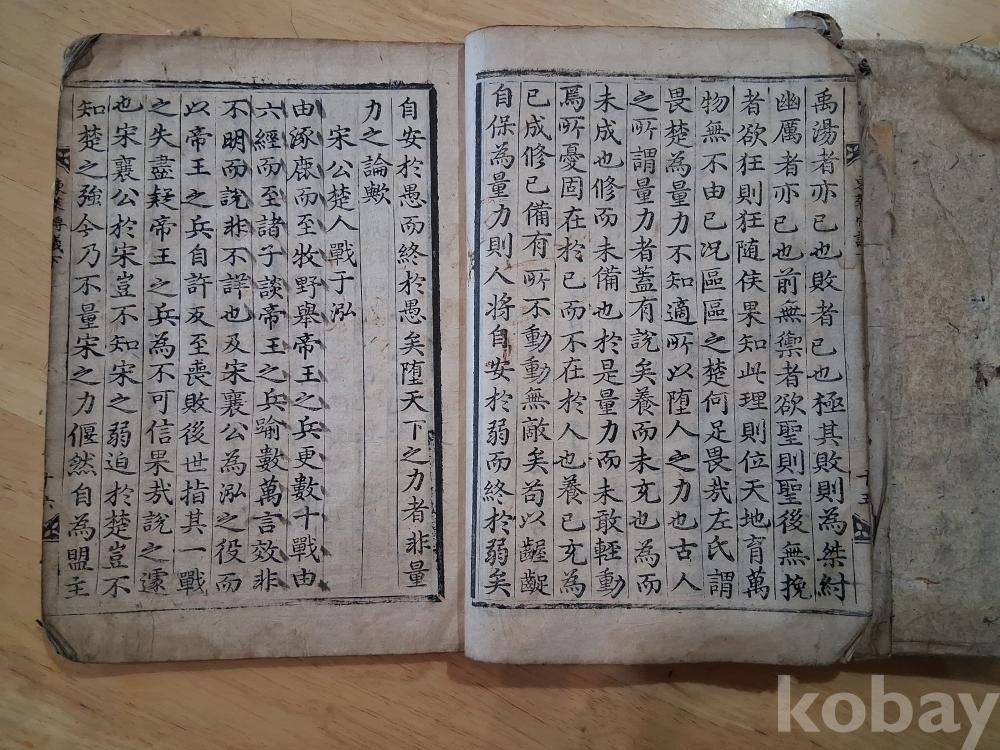 禹湯者亦已也敗者已也極其敗則為桀紂
幽厲者亦已也前無禦者欲聖則聖後無挽
者欲狂則狂随侯果知此理則位天地育萬
物無不由已况區區之楚何足畏㢤左氏謂
畏楚為量力不知適所以堕人之力也古人
之所謂量力者蓋有說矣養而未充也為而
未成也修而未備也於是量力而未敢輕動
焉所憂固在於已而不在於人也養已充為
已成修已備有所不動動無敵矣苟以齷齪
自保為量力則人將自安於弱而終於弱矣
自安於愚而終於愚矣堕天下之力者非量
力之論歟
宋公楚人戰于泓
由涿鹿而至牧野舉帝王之兵更數十戰由
六經而至諸子談帝王之兵踰數萬言效非
不明而說非不詳也及宋襄公為泓之役而
以帝王之兵自許及至喪敗後世指其一戰
之失盡疑帝王之兵為不可信果㢤說之遽
也宋襄公於宋豈不知宋之弱迫於楚豈不
知楚之強今乃不量宋之力偃然自為盟主
十五
十六
kobay